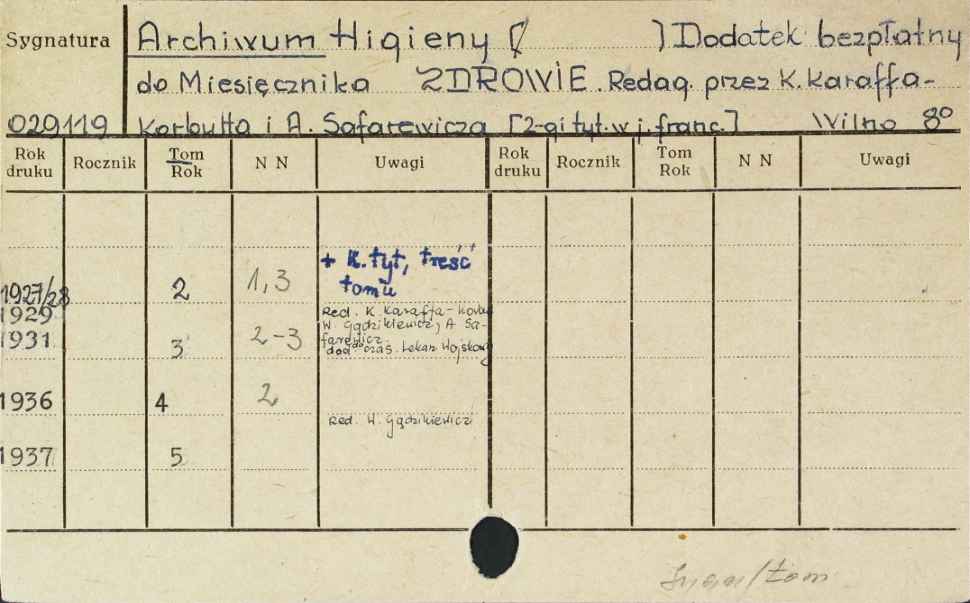 Sygnatura
Archiwum Higieny [ ] Dodatek bezpłatny
do Miesięcznika ZDROWIE. Redag. przez K. Karaffa-
029119 Korbutta i A. Safarewicza [2-gi tyt. w j. franc.] Wilno 8°
Rok druku Rocznik Tom Rok N N Uwagi Rok druku Rocznik Tom Rok N N Uwagi
+ K. tyt, treść
tomu
1927/28 2 1,3
1929 Red. K. Karaffa-Korbu
W. Gądzikiewicz, A Sa-
1931 3 2-3 farewicz
dod. do czas. Lekarz Wojskowy
1936 4 2
Red. W. Gądzikiewicz
1937 5